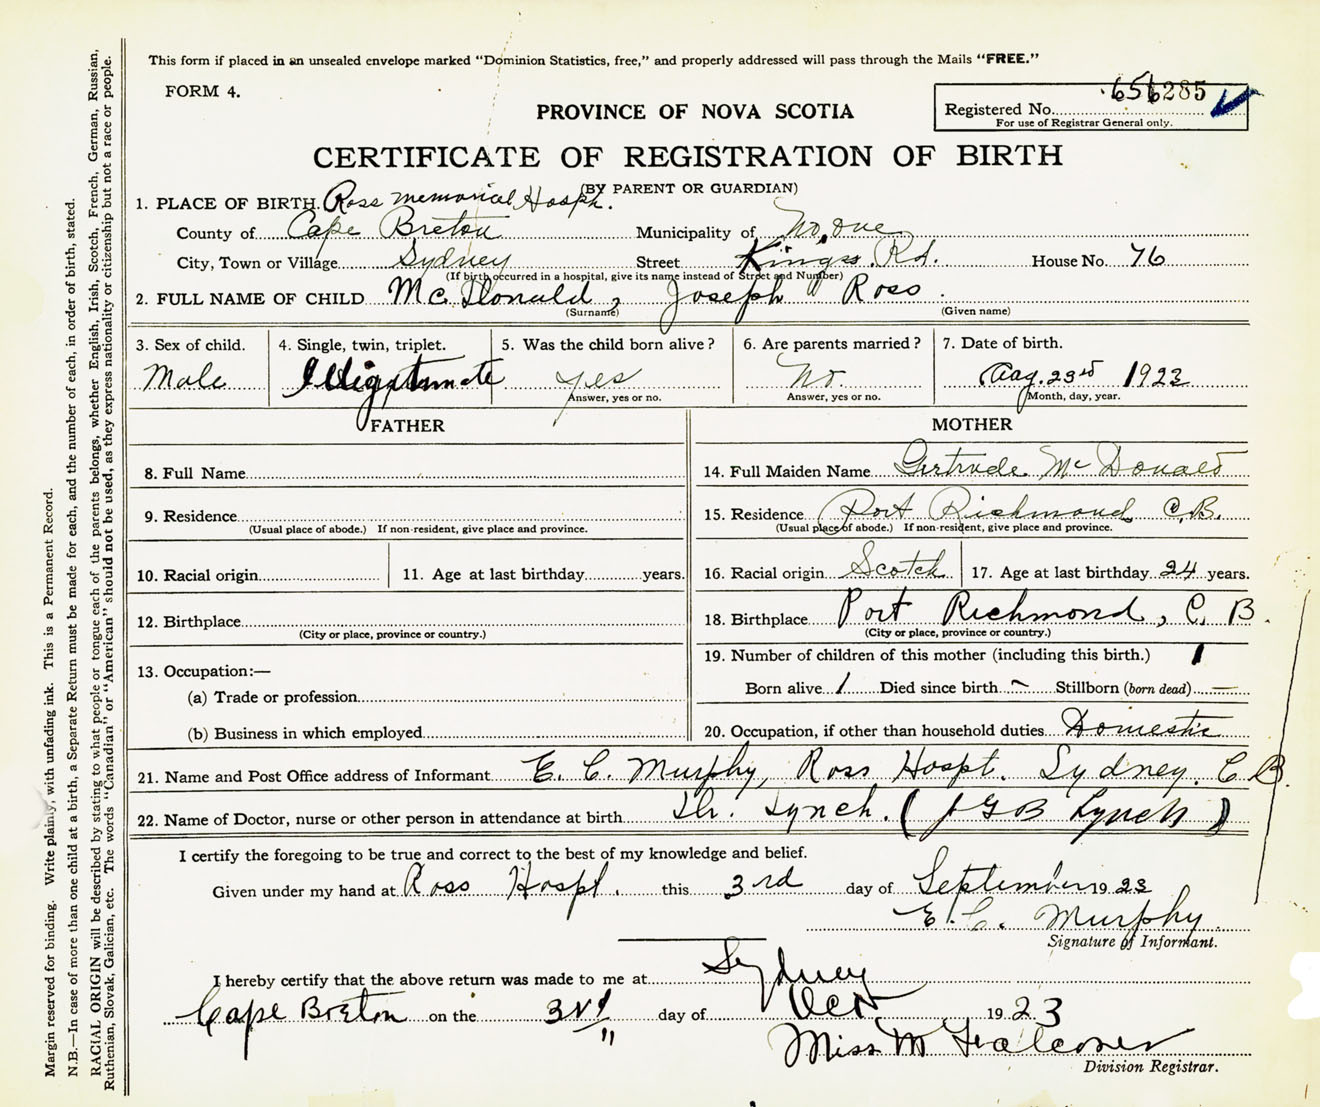 This form if placed in an unsealed envelope marked "Dominion Statistics, free," and properly addressed will pass through the Mails "FREE."
FORM 4.
656285
PROVINCE OF NOVA SCOTIA
Registered No.
For use of Registrar General only.
CERTIFICATE OF REGISTRATION OF BIRTH
(BY PARENT OR GUARDIAN)
1. PLACE OF BIRTH. Ross Memorial Hosph.
County of Cape Breton Municipality of No. One
City, Town or Village Sydney Street Kings Rd. House No. 76
(If birth occurred in a hospital, give its name instead of Street and Number)
2. FULL NAME OF CHILD Mc Donald, Joseph Ross.
(Surname) (Given name)
3. Sex of child. 4. Single, twin, triplet. 5. Was the child born alive? 6. Are parents married? 7. Date of birth.
Male Illigetimate yes No. Aug. 23rd 1923
Answer, yes or no. Answer, yes or no. Month, day, year.
FATHER MOTHER
8. Full Name 14. Full Maiden Name Gertrude Mc Donald
9. Residence 15. Residence Port Richmond, C.B.
(Usual place of abode.) If non-resident, give place and province. (Usual place of abode.) If non-resident, give place and province.
10. Racial origin 11. Age at last birthday years. 16. Racial origin Scotch 17. Age at last birthday 24 years.
12. Birthplace 18. Birthplace Port Richmond, C. B.
(City or place, province or country.) (City or place, province or country.)
19. Number of children of this mother (including this birth.) 1
13. Occupation:—
(a) Trade or profession Born alive 1 Died since birth ~ Stillborn (born dead) —
(b) Business in which employed 20. Occupation, if other than household duties Domestic
21. Name and Post Office address of Informant E. C. Murphy, Ross Hospt. Sydney. C.B.
22. Name of Doctor, nurse or other person in attendance at birth Dr. Lynch. (J G B Lynch)
I certify the foregoing to be true and correct to the best of my knowledge and belief.
Given under my hand at Ross Hospt. this 3rd day of September 1923
E. C. Murphy
Signature of Informant.
I hereby certify that the above return was made to me at Sydney
Cape Breton on the 3rd day of Oct. 1923
"
Miss M Falconer
Division Registrar.
Margin reserved for binding. Write plainly, with unfading ink. This is a Permanent Record.
N.B.—In case of more than one child at a birth, a Separate Return must be made for each, and the number of each, in order of birth, stated.
RACIAL ORIGIN will be described by stating to what people or tongue each of the parents belongs, whether English, Irish, Scotch, French, German, Russian,
Ruthenian, Slovak, Galician, etc. The words "Canadian" or "American" should not be used, as they express nationality or citizenship but not a race or people.